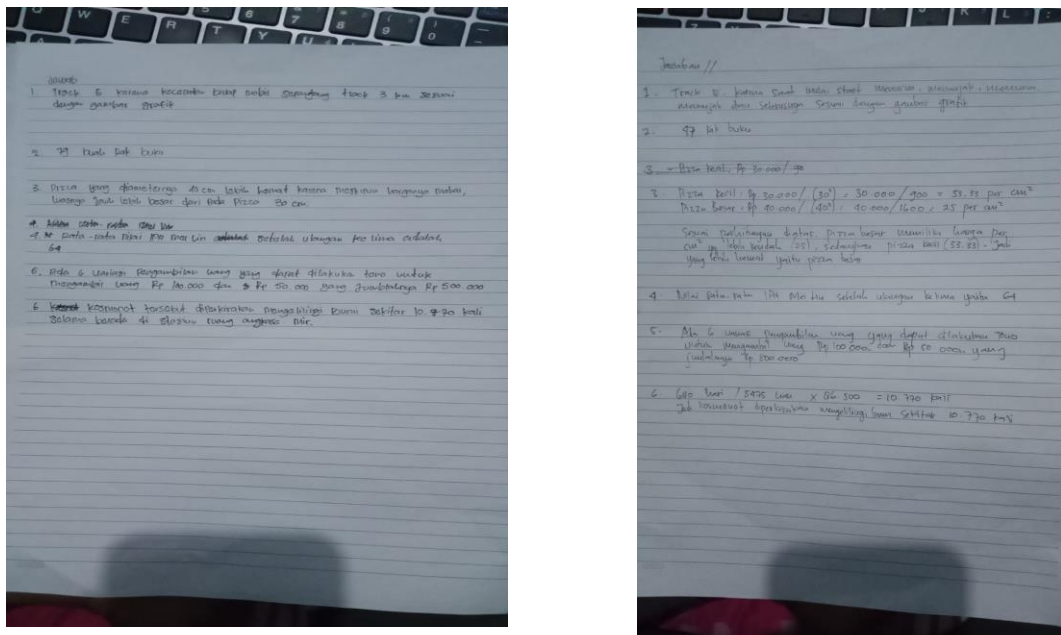 Jawab
1. Track B karena kecepatan balap mobil sepanjang track 3 km sesuai
dengan gambar grafik
2. buah pak buku
3. Pizza yang diameternya 40 cm lebih hemat karena meskipun harganya mahal,
luasnya jauh lebih besar dari pada Pizza 30 cm.
4. Rata-rata nilai IPA Mei Lin setelah ulangan ke lima adalah
64
5. Ada 6 variasi pengambilan uang yang dapat dilakukan Tono untuk
mengambil uang Rp 100.000 dan Rp 50.000 yang jumlahnya Rp 500.000
6. kosmonot tersebut diperkirakan mengelilingi bumi sekitar 10.770 kali
selama berada di stasiun ruang angkasa Mir.
Jawaban //
1. Track B. karena saat mulai start
dan seterusnya sesuai dengan gambar grafik
2. 47 pak buku
3. Pizza kecil: Rp 30.000/
3. Pizza kecil: Rp 30.000/(30²) = 30.000/900 = 33.33 per cm²
Pizza Besar: Rp 40.000/(40²) = 40.000/1600 = 25 per cm²
Sesuai perhitungan diatas, pizza besar memiliki harga per
cm² yg lebih rendah (25), sedangkan pizza kecil (33.33). Jadi
yang lebih hemat yaitu pizza besar
4. Nilai rata-rata IPA Mei Lin setelah ulangan kelima yaitu 64
5. Ada 6 variasi pengambilan uang yang dapat dilakukan Tono
untuk mengambil uang Rp 100.000 dan Rp 50.000 yang
jumlahnya Rp 500.000
6. 680 hari / x 86.300 = 10.770 kali
Jadi kosmonot diperkirakan mengelilingi bumi sekitar 10.770 kali